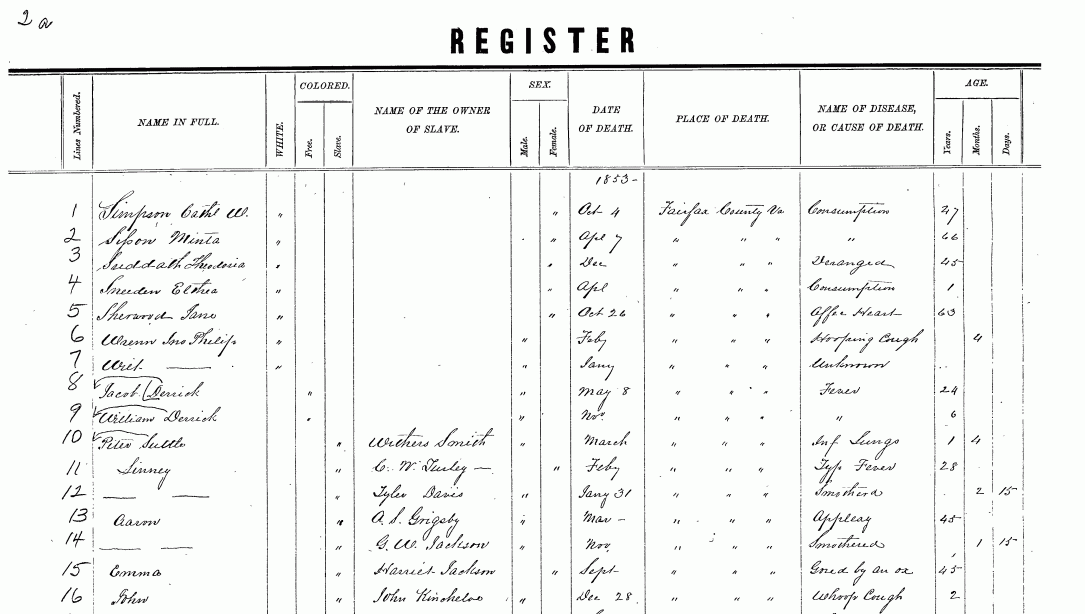 2 a
REGISTER
Lines Numbered. NAME IN FULL. WHITE. COLORED. Free. Slave. NAME OF THE OWNER OF SLAVE. SEX. Male. Female. DATE OF DEATH. PLACE OF DEATH. NAME OF DISEASE, OR CAUSE OF DEATH. AGE. Years. Months. Days.
1853-
1 Simpson Cathl W. " " Oct 4 Fairfax County Va Consumption 27
2 Sisson Minta " " Apl 7 " " " " 66
3 Theodoria " " Dec " " " Deranged 45
4 Sneeden " " Apl " " " Consumption 1
5 Sherwood Jane " " Oct 26 " " " Affec Heart 63
6 Wrenn Jno Philip " " Feby " " " Hooping Cough 4
7 Writ — " " Jany " " " Unknown
8 Jacob Derrick " " May 8 " " " Fever 24
9 William Derrick " " Nov " " " " 6
10 Peter Suttle " Withers Smith " March " " " Inf Lungs 1 4
11 Linney " C. W. Turley — " Feby " " " Typ Fever 28
12 — — " Tyler Davis " Jany 31 " " " Smotherd 2 15
13 Aaron " A. S. Grigsby " Mar - " " " Appleay 45
14 — — " G. W. Jackson " Nov " " " Smothered 1 15
15 Emma " Harriet Jackson " Sept " " " Gored by an ox 45
16 John " John Kincheloe " Dec 28 " " " Whoop Cough 2